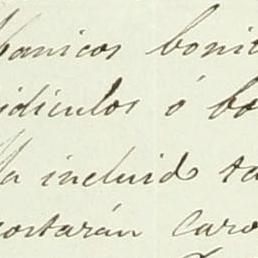 abanicos bonit
ridiculos ó bo
Ha incluido ta
costarán caro